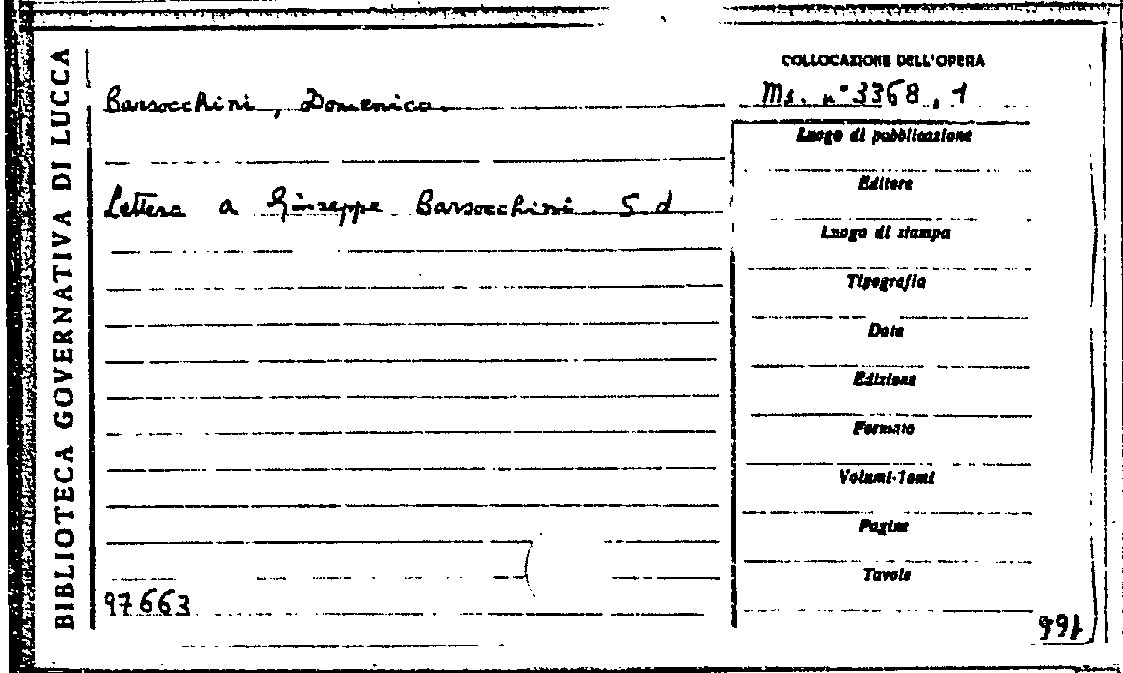 BIBLIOTECA GOVERNATIVA DI LUCCA
Barsocchini, Domenico.
Lettera a Giuseppe Barsocchini S d
97663
COLLOCAZIONE DELL'OPERA
Ms. n° 3368, 1
Luogo di pubblicazione
Editore
Luogo di stampa
Tipografia
Data
Edizione
Formato
Volumi-Tomi
Pagine
Tavole